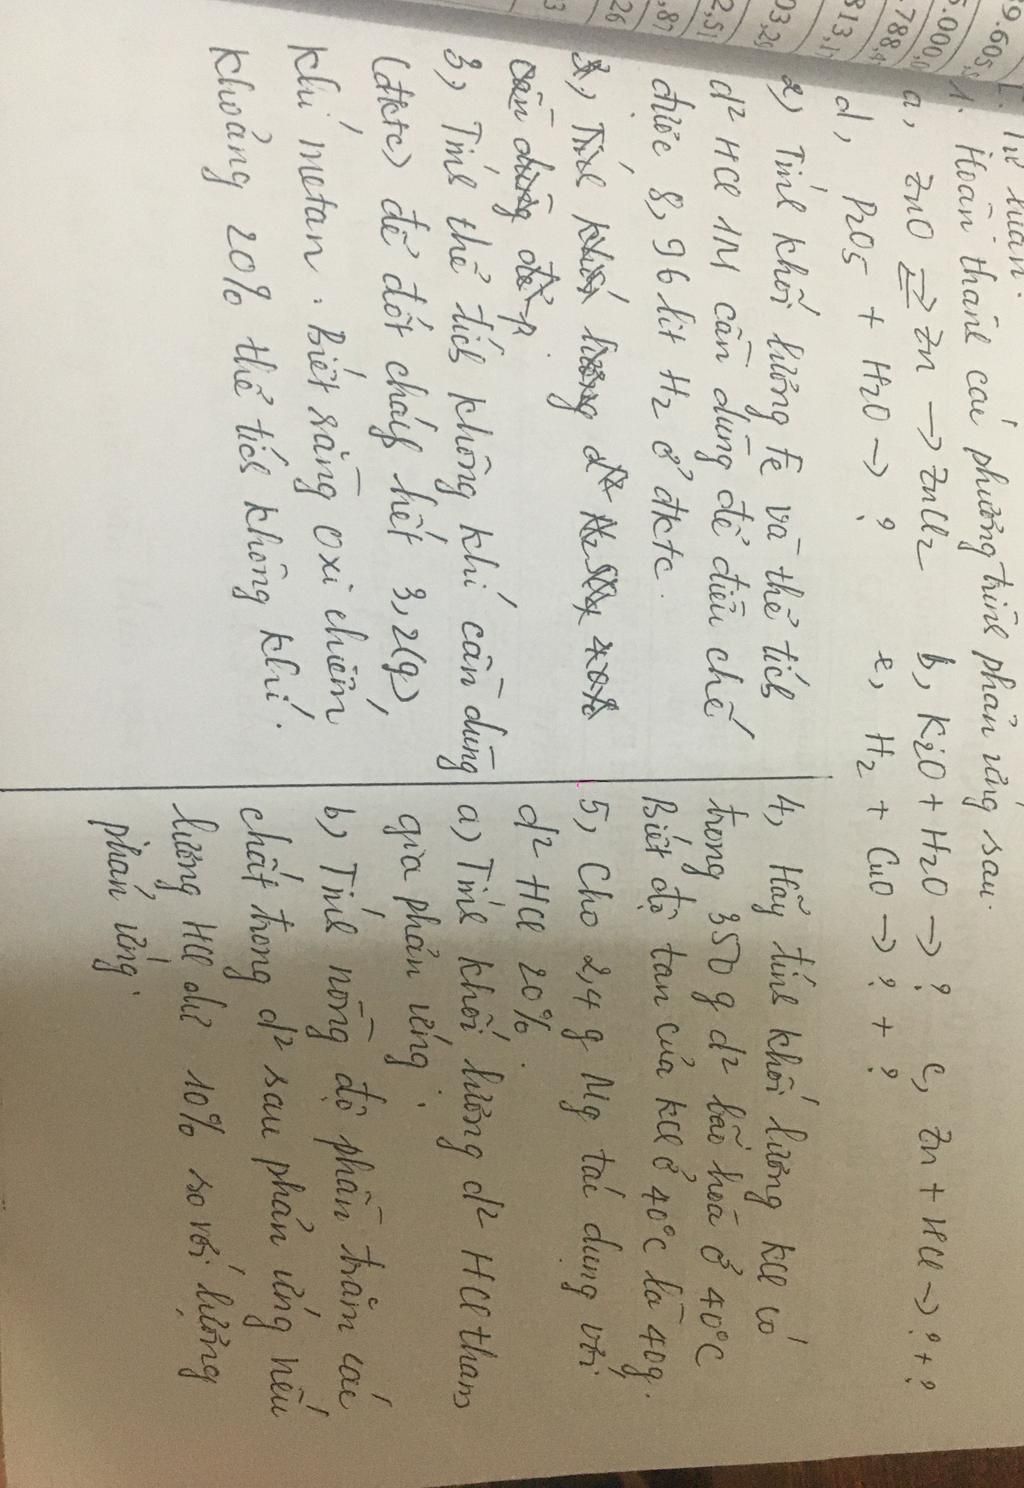 I. Tự luận.
1. Hoàn thành các phương trình phản ứng sau.
a, ZnO ⇌ Zn → ZnCl2 b, K2O + H2O → ? c, Zn + HCl → ? + ?
d, P2O5 + H2O → ? e, H2 + CuO → ? + ?
2, Tính khối lượng Fe và thể tích
d² HCl 1M cần dùng để điều chế
được 8,96 lit H2 ở đktc.
3, Tính khối lượng d² H2SO4
cần dùng để
3, Tính thể tích không khí cần dùng
(đktc) để đốt cháy hết 3,2(g)
khí metan. Biết rằng oxi chiếm
khoảng 20% thể tích không khí.
4, Hãy tính khối lượng KCl có
trong 350 g d² bão hoà ở 40°C
Biết độ tan của KCl ở 40°C là 40g.
5, Cho 2,4 g Mg tác dụng với
d² HCl 20%.
a) Tính khối lượng d² HCl tham
gia phản ứng.
b, Tính nồng độ phần trăm các
chất trong d² sau phản ứng nếu
lượng HCl dư 10% so với lượng
phản ứng.
9.605
5.000,0
.788,4
813,1
03,29
2,51
,87
26